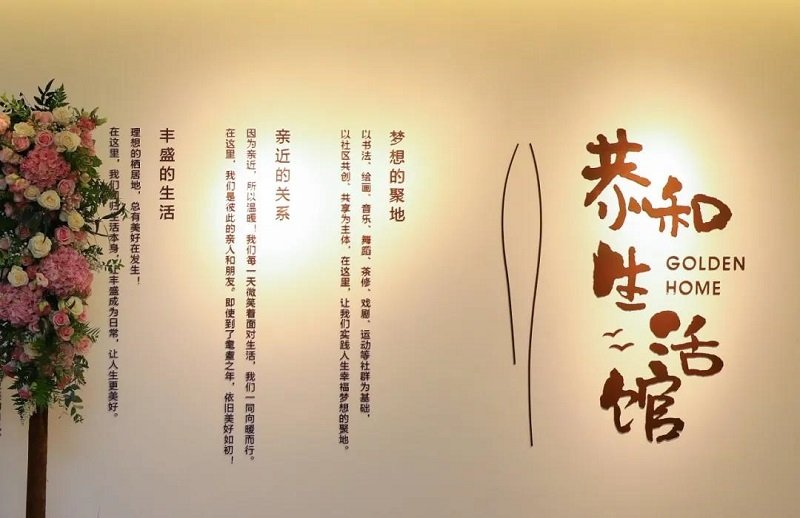 恭和
生活
馆
GOLDEN
HOME
梦想的聚地
以书法、绘画、音乐、舞蹈、茶修、戏剧、运动等社群为基础，
以社区共创、共享为主体，在这里，让我们实践人生幸福梦想的聚地。
亲近的关系
因为亲近，所以温暖！我们每一天微笑着面对生活，我们一同向暖而行。
在这里，我们是彼此的亲人和朋友。即使到了耄耋之年，依旧美好如初！
丰盛的生活
理想的栖居地，总有美好在发生！
在这里，我们回归生活本身，让丰盛成为日常，让人生更美好。